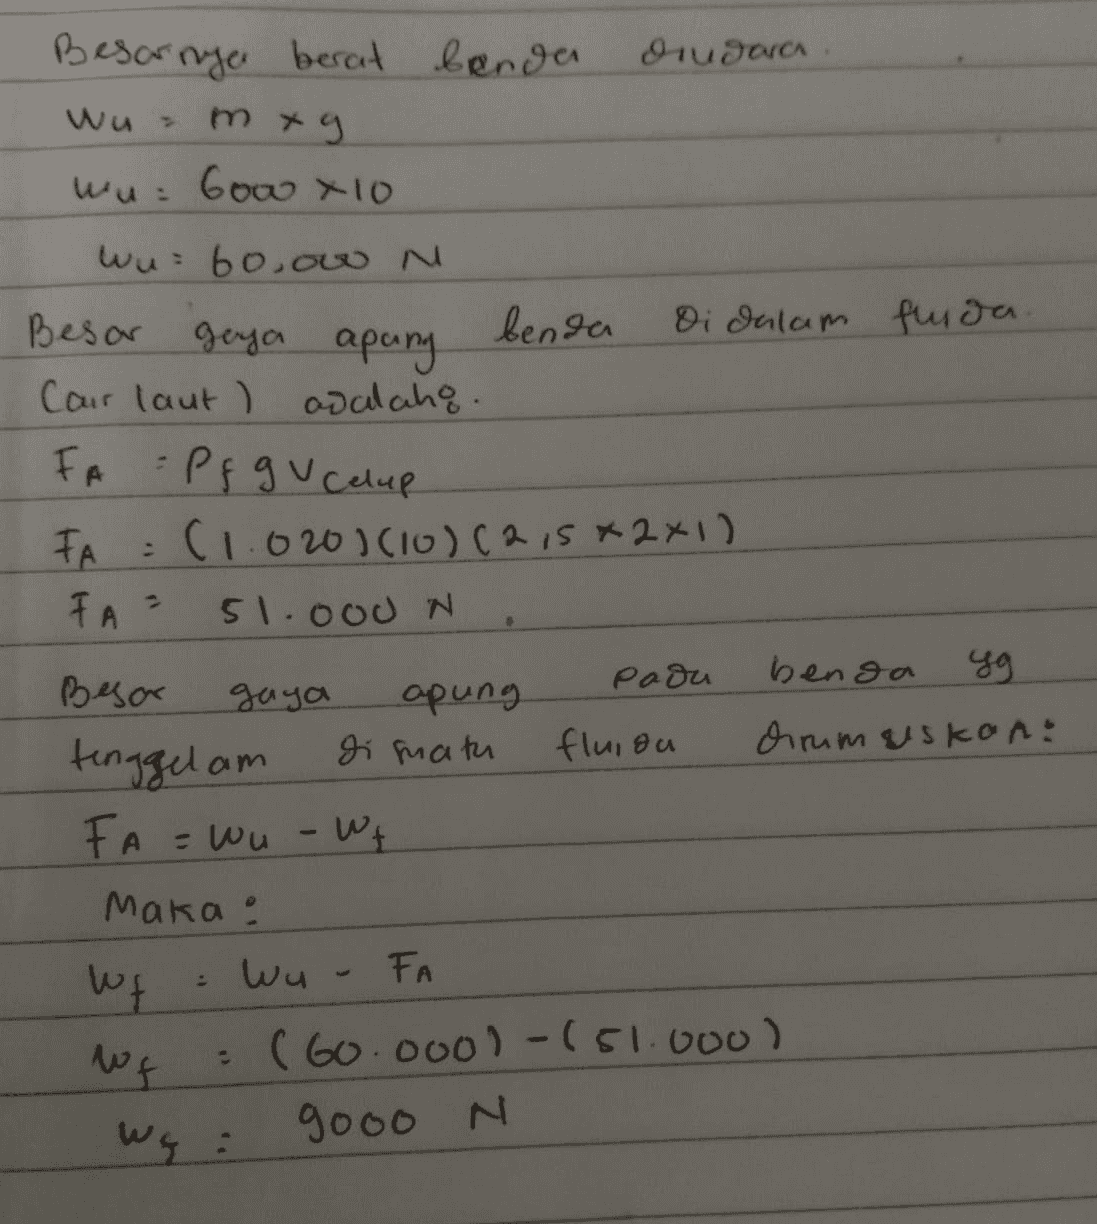 Besarnya berat benda diudara.
Wu = m x g
Wu = 6000 x 10
Wu = 60,000 N
Besar gaya apung benda didalam fluida
(air laut) adalah:
FA = Pf g V celup
FA = (1.020)(10)(2,5 x 2 x 1)
FA = 51.000 N
Besar gaya apung pada benda yg
tenggelam di suatu fluida dirumuskan:
FA = Wu - Wf
Maka:
Wf = Wu - FA
Wf = (60.000) - (51.000)
Wf = 9000 N